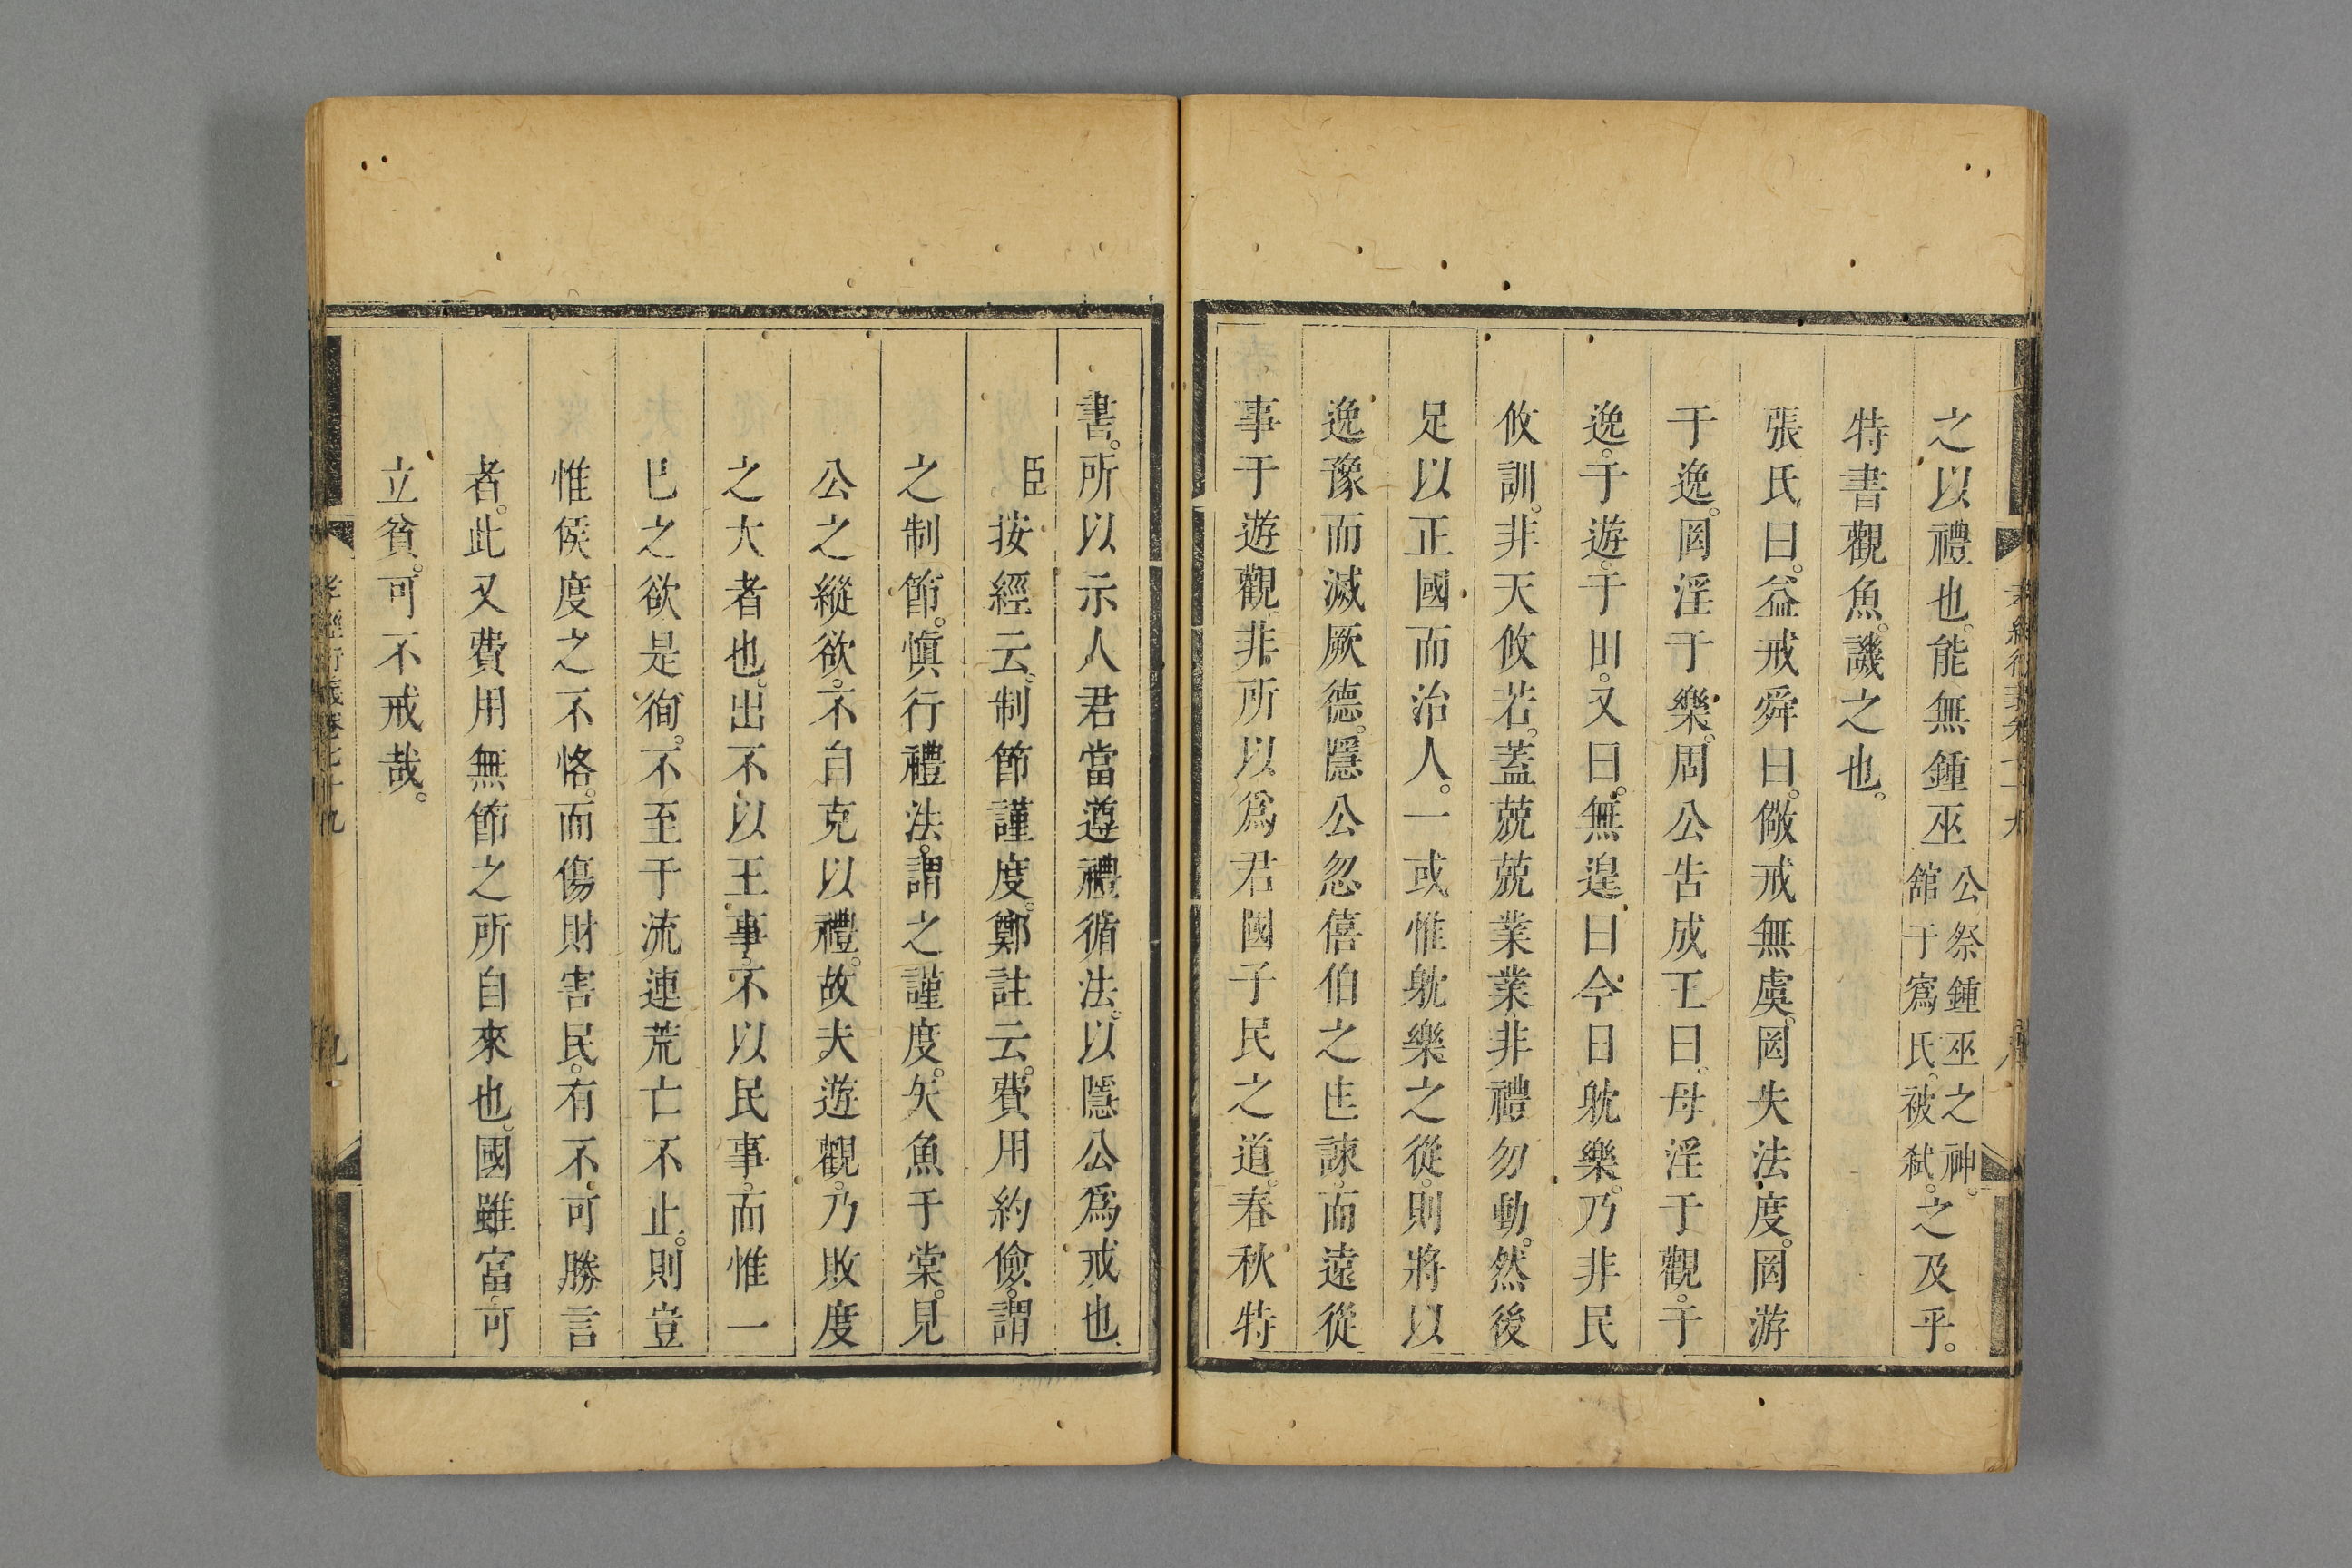 之以禮也。能無鍾巫公祭鍾巫之神。舘于寪氏。被弑。之及乎。
特書觀魚。譏之也。
張氏曰。益戒舜曰。儆戒無虞。罔失法度。罔游
于逸。罔淫于樂。周公告成王曰。毋淫于觀。于
逸。于遊。于田。又曰。無遑曰今日躭樂。乃非民
攸訓。非天攸若。蓋兢兢業業。非禮勿動。然後
足以正國而治人。一或惟躭樂之從。則將以
逸豫而滅厥德。隱公忽僖伯之㠯諫。而遠從
事于遊觀。非所以爲君國子民之道。春秋特
書。所以示人君當遵禮循法。以隱公爲戒也
臣按經云。制節謹度。鄭註云。費用約儉。謂
之制節。慎行禮法。謂之謹度。矢魚于棠。見
公之縱欲。不自克以禮。故夫遊觀。乃敗度
之大者也。出不以王事。不以民事。而惟一
已之欲是徇。不至于流連荒亡不止。則豈
惟侯度之不恪。而傷財害民。有不可勝言
者。此又費用無節之所自來也。國雖富。可
立貧。可不戒哉。
孝經衍義卷七十九
九